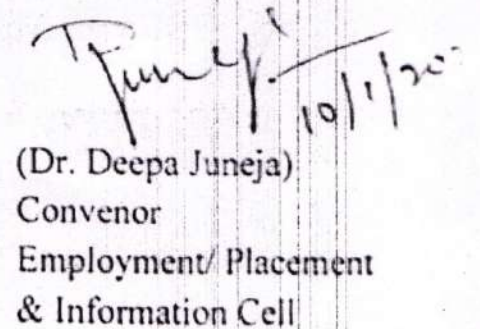 10/1/20
(Dr. Deepa Juneja)
Convenor
Employment/ Placement
& Information Cell